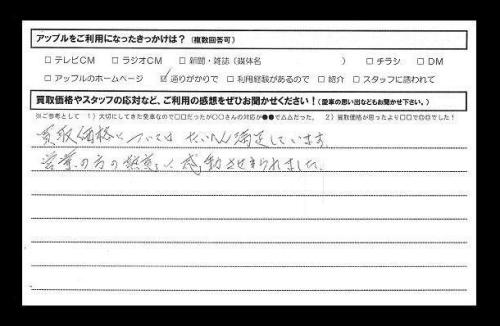 アップルをご利用になったきっかけは？（複数回答可）
□ テレビCM □ ラジオCM □ 新聞・雑誌（媒体名 ） □ チラシ □ DM
□ アップルのホームページ ☑ 通りがかりで □ 利用経験があるので □ 紹介 □ スタッフに誘われて
買取価格やスタッフの応対など、ご利用の感想をぜひお聞かせください！（愛車の思い出などもお聞かせ下さい。）
※ご参考として 1）大切にしてきた愛車なので□□だったが〇〇さんの対応が●●で△△だった。 2）買取価格が思ったより□□で〇〇でした！
買取価格については たいへん満足しています
営業の方の熱意に感動させられました。